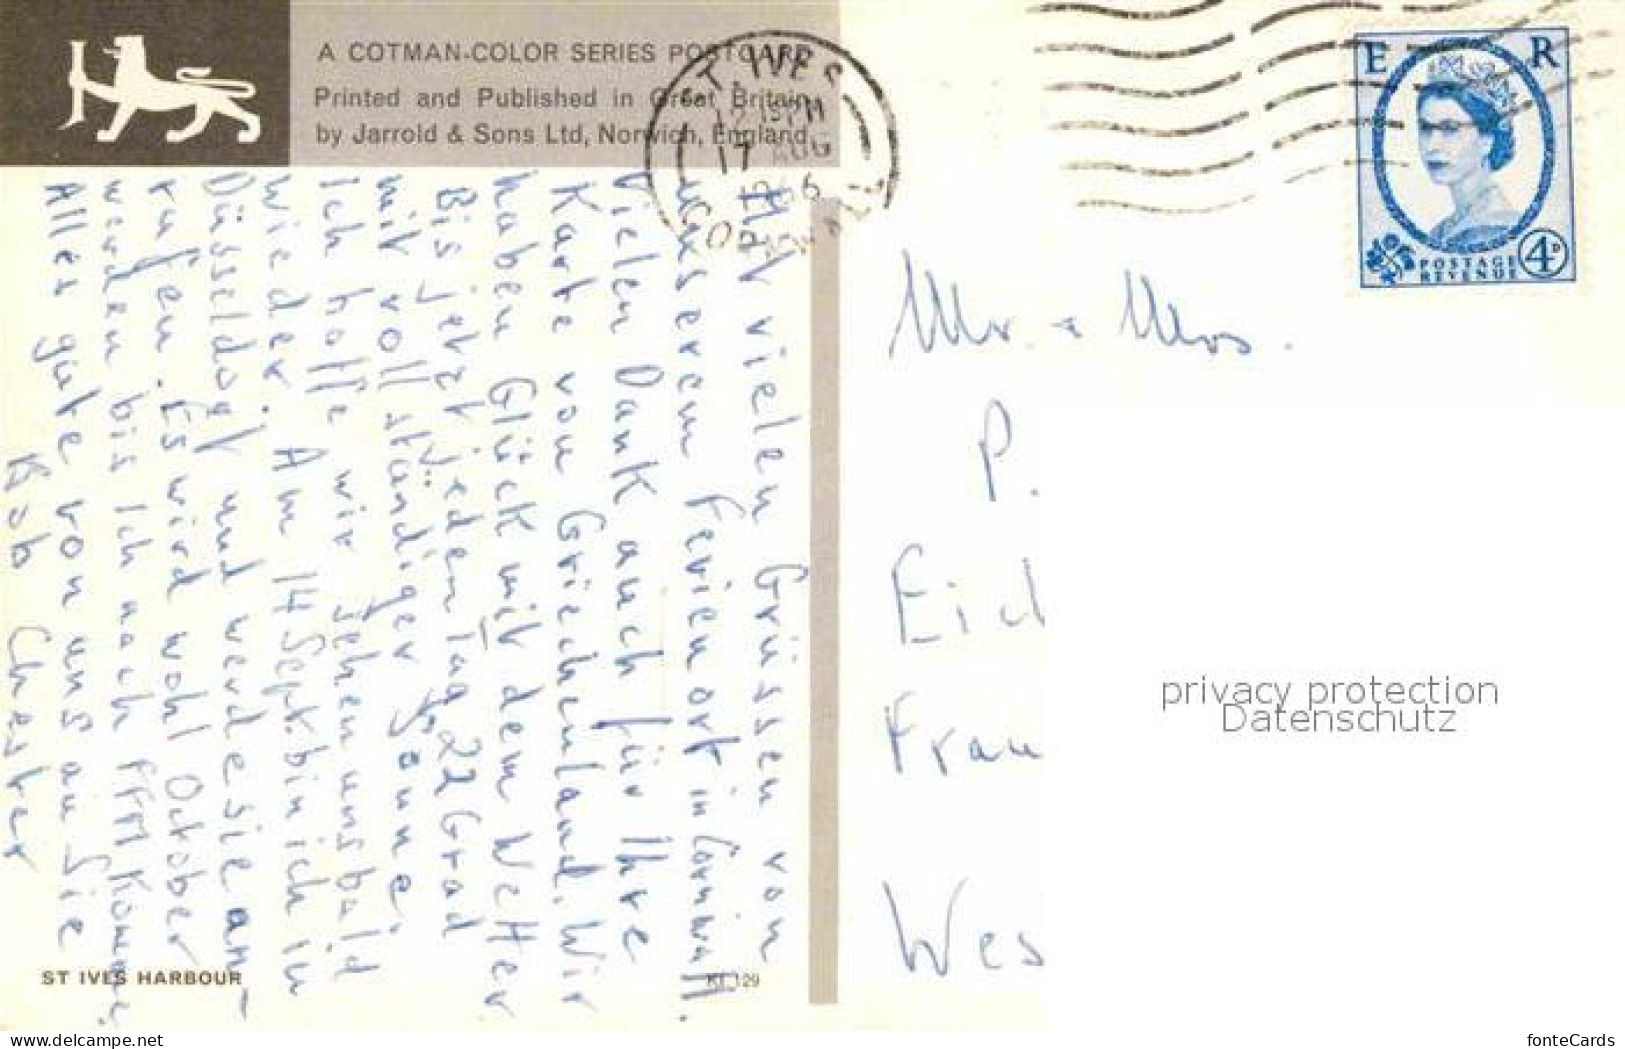 A COTMAN-COLOR SERIES POSTCARD
Printed and Published in Great Britain
by Jarrold & Sons Ltd, Norwich, England
ST. IVES
12 15 PM
17 AUG
E R
POSTAGE
REVENUE
4D
Mit vielen Grüssen von
unserem Ferienort in Cornwall.
Vielen Dank auch für Ihre
Karte von Griechenland. Wir
haben Glück mit dem Wetter
Bis jetzt jeden Tag 22 Grad
mit vollständiger Sonne.
Ich hoffe wir sehen uns bald
wieder. Am 14 Sept. bin ich in
Düsseldorf und werde sie an-
rufen. Es wird wohl October
werden bis ich nach FFM komme.
Alles gute von uns an Sie
Rob Chester
Mr. + Mrs.
P.
Eich
Frau
Wes
privacy protection
Datenschutz
ST IVES HARBOUR
129
www.delcampe.net
fonteCards